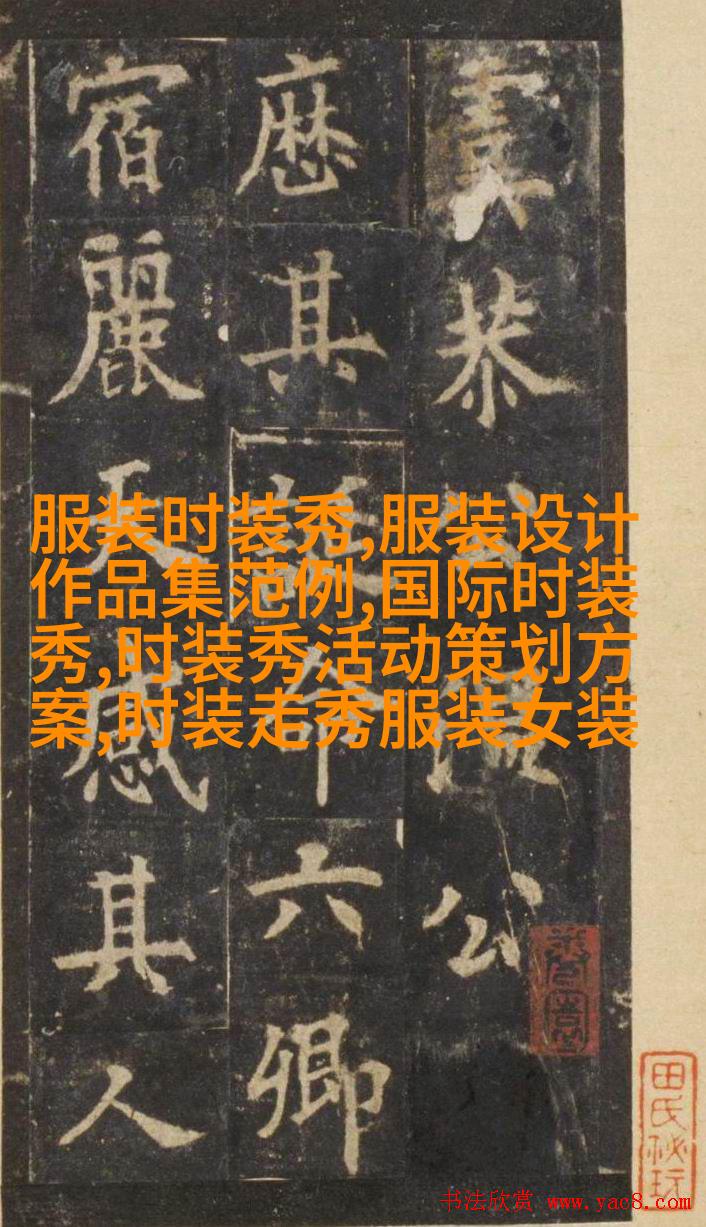 恭公
歴其命六卿
宿麗天感其人
服装时装秀,服装设计
作品集范例,国际时装
秀,时装秀活动策划方
案,时装走秀服装女装
田氏秘玩
书法欣赏 www.yac8.com